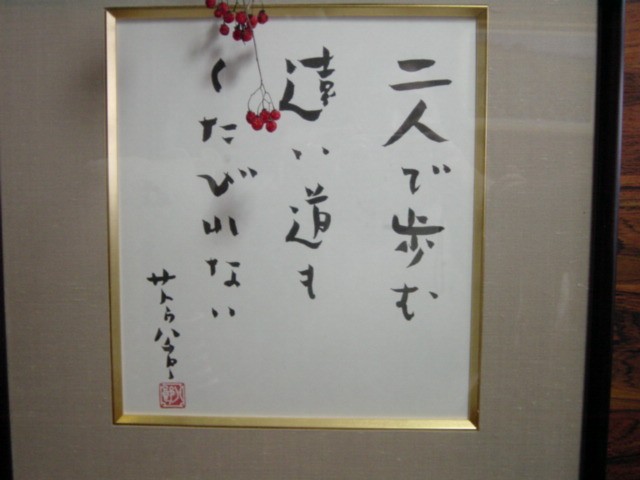 二人で歩む
遠い道も
くたびれない
サトウハチロー